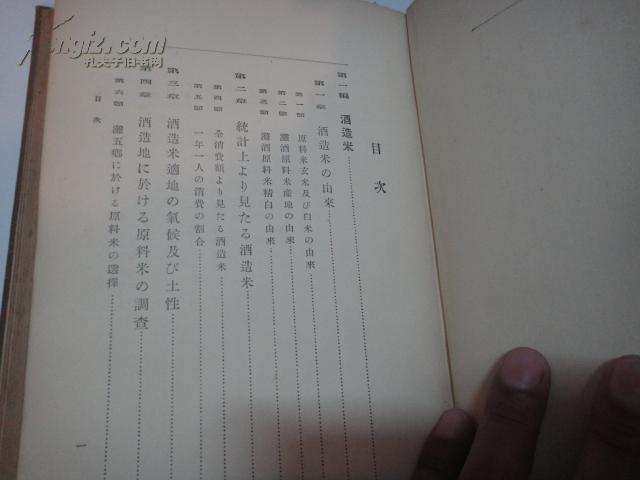 目次
第一編 酒造米
第一章 酒造米の由來
第一節 原料米玄米及び白米の由來
第二節 灘酒原料米產地の由來
第三節 灘酒原料米精白の由來
第二章 統計上より見たる酒造米
第四節 全消費額より見たる酒造米
第五節 一年一人の消費の割合
第三章 酒造米適地の氣候及び土性
第四章 酒造地に於ける原料米の調査
第六節 灘五鄕に於ける原料米の選擇
目次
一
孔夫子旧书网